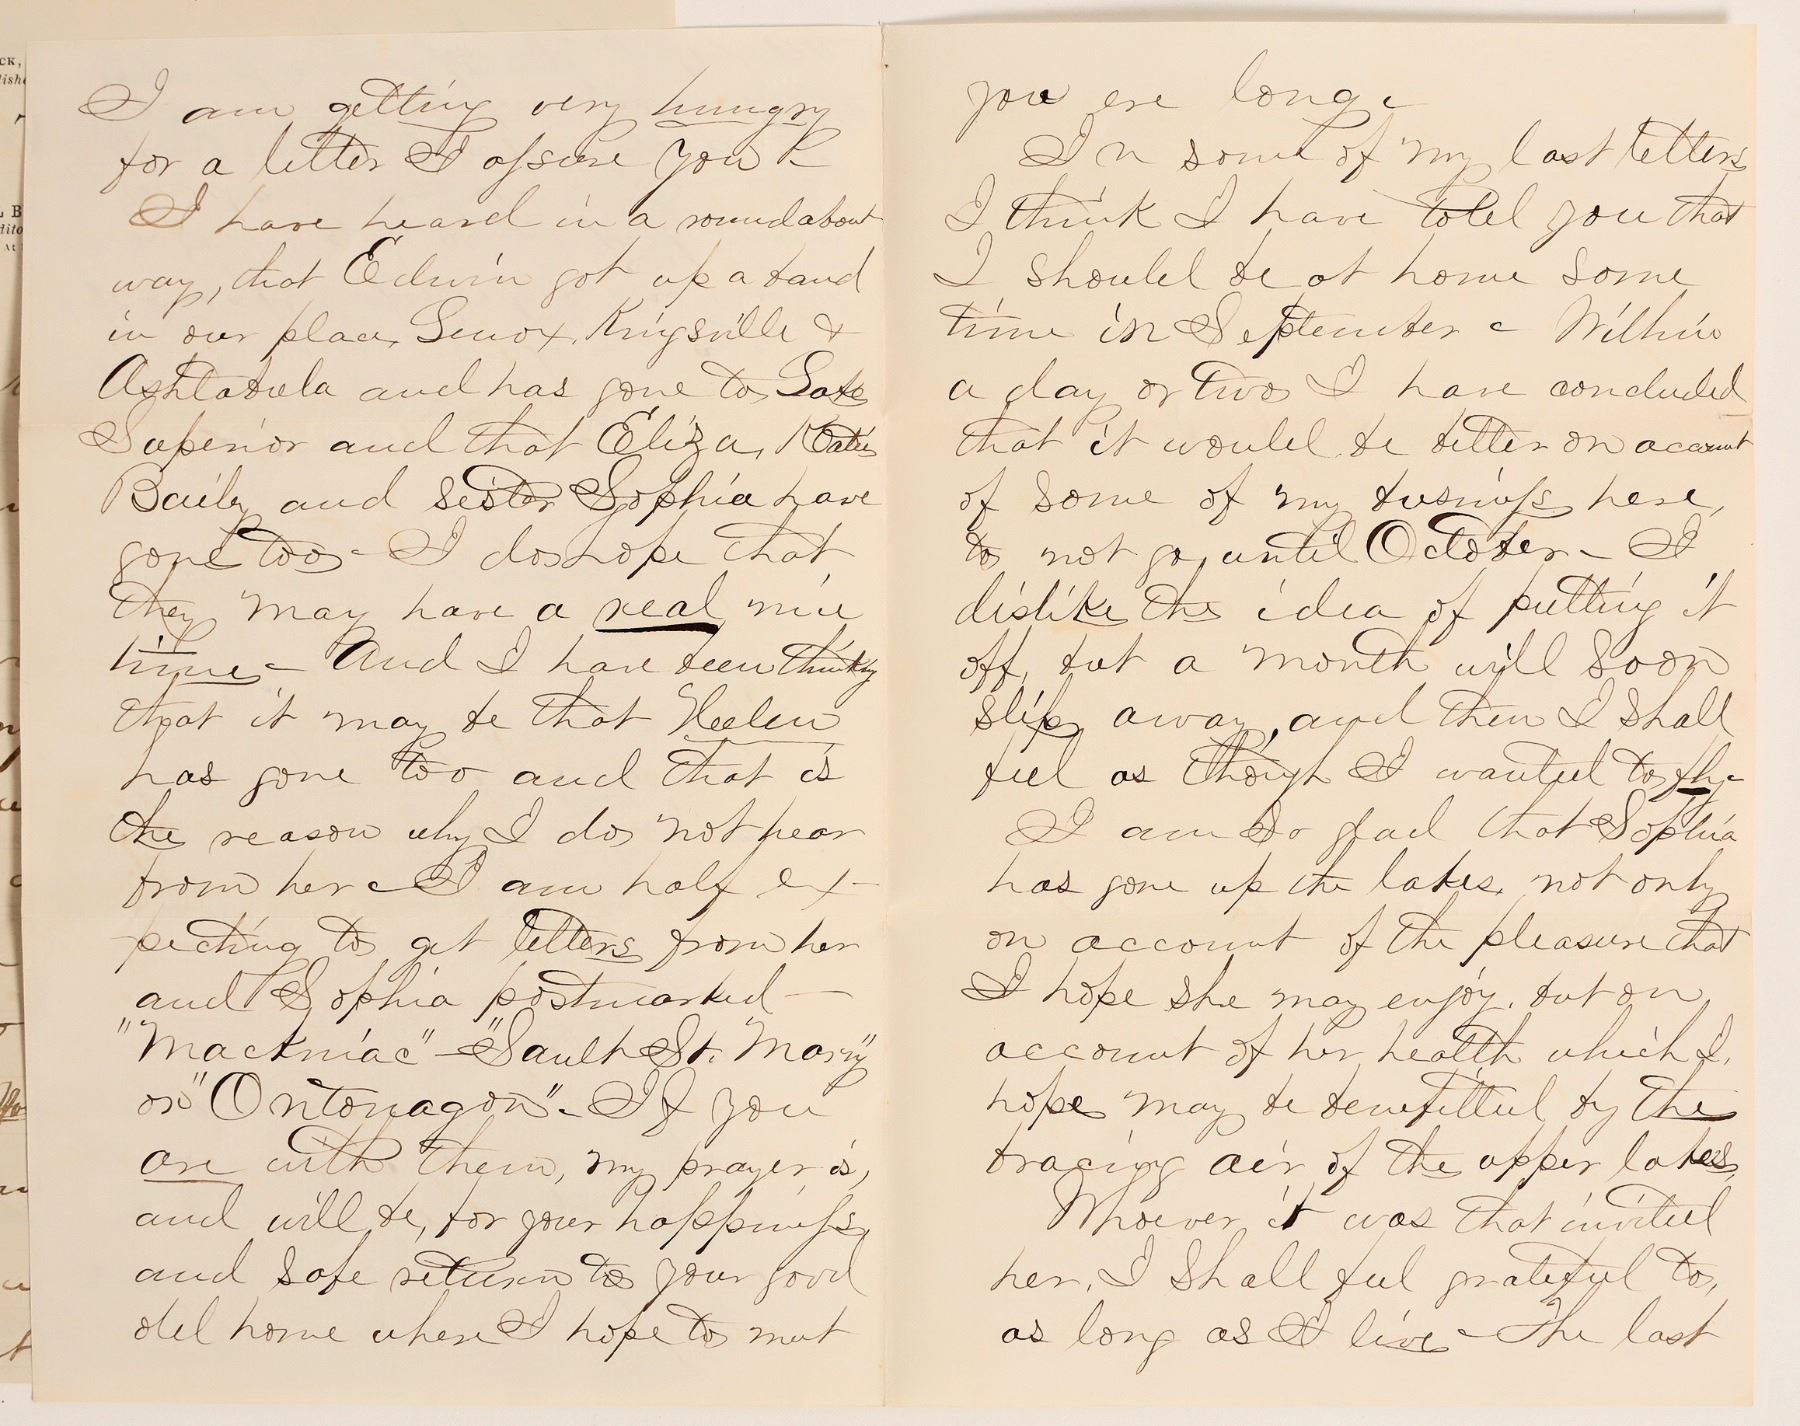 I am getting very hungry
for a letter I assure you –
I have heard in a roundabout
way, that Edwin got up a band
in our place, Lenox, Kingsville &
Ashtabula and has gone to Lake
Superior and that Eliza, Katie
Baily and sister Sophia have
gone too – I do hope that
they may have a real nice
time – And I have been thinking
that it may be that Helen
has gone too and that is
the reason why I do not hear
from her – I am half ex-
pecting to get letters from her
and Sophia postmarked –
"Mackniac" – "Sault St. Mary"
or "Ontonagon" – If you
are with them, my prayer is,
and will be, for your happiness,
and safe return to your good
old home where I hope to meet
you ere long –
In some of my last letters
I think I have told you that
I should be at home some
time in September – Within
a day or two I have concluded
that it would be better on account
of some of my business here,
to not go, until October – I
dislike the idea of putting it
off, but a month will soon
slip away, and then I shall
feel as though I wanted to fly –
I am so glad that Sophia
has gone up the lakes, not only
on account of the pleasure that
I hope she may enjoy, but on
account of her health which I,
hope may be benefitted by the
bracing air of the upper lakes,
Whoever it was that invited
her, I shall feel grateful to,
as long as I live – The last
CK,
lishe
L B
dito
At